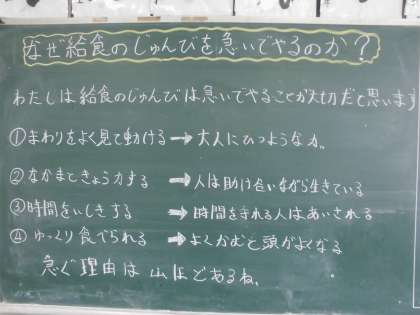 なぜ給食のじゅんびを急いでやるのか？
わたしは給食のじゅんびは急いでやることが大切だと思います
①まわりをよく見て動ける→大人にひつような力。
②なかまときょう力する→人は助け合いながら生きている
③時間をいしきする→時間を守れる人はあいされる
④ゆっくり食べられる→よくかむと頭がよくなる
急ぐ理由は山ほどあるね。